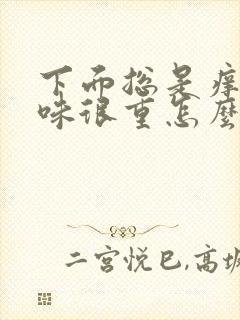 下面总是痒
味很重怎麼
二宫悦巳,高坂